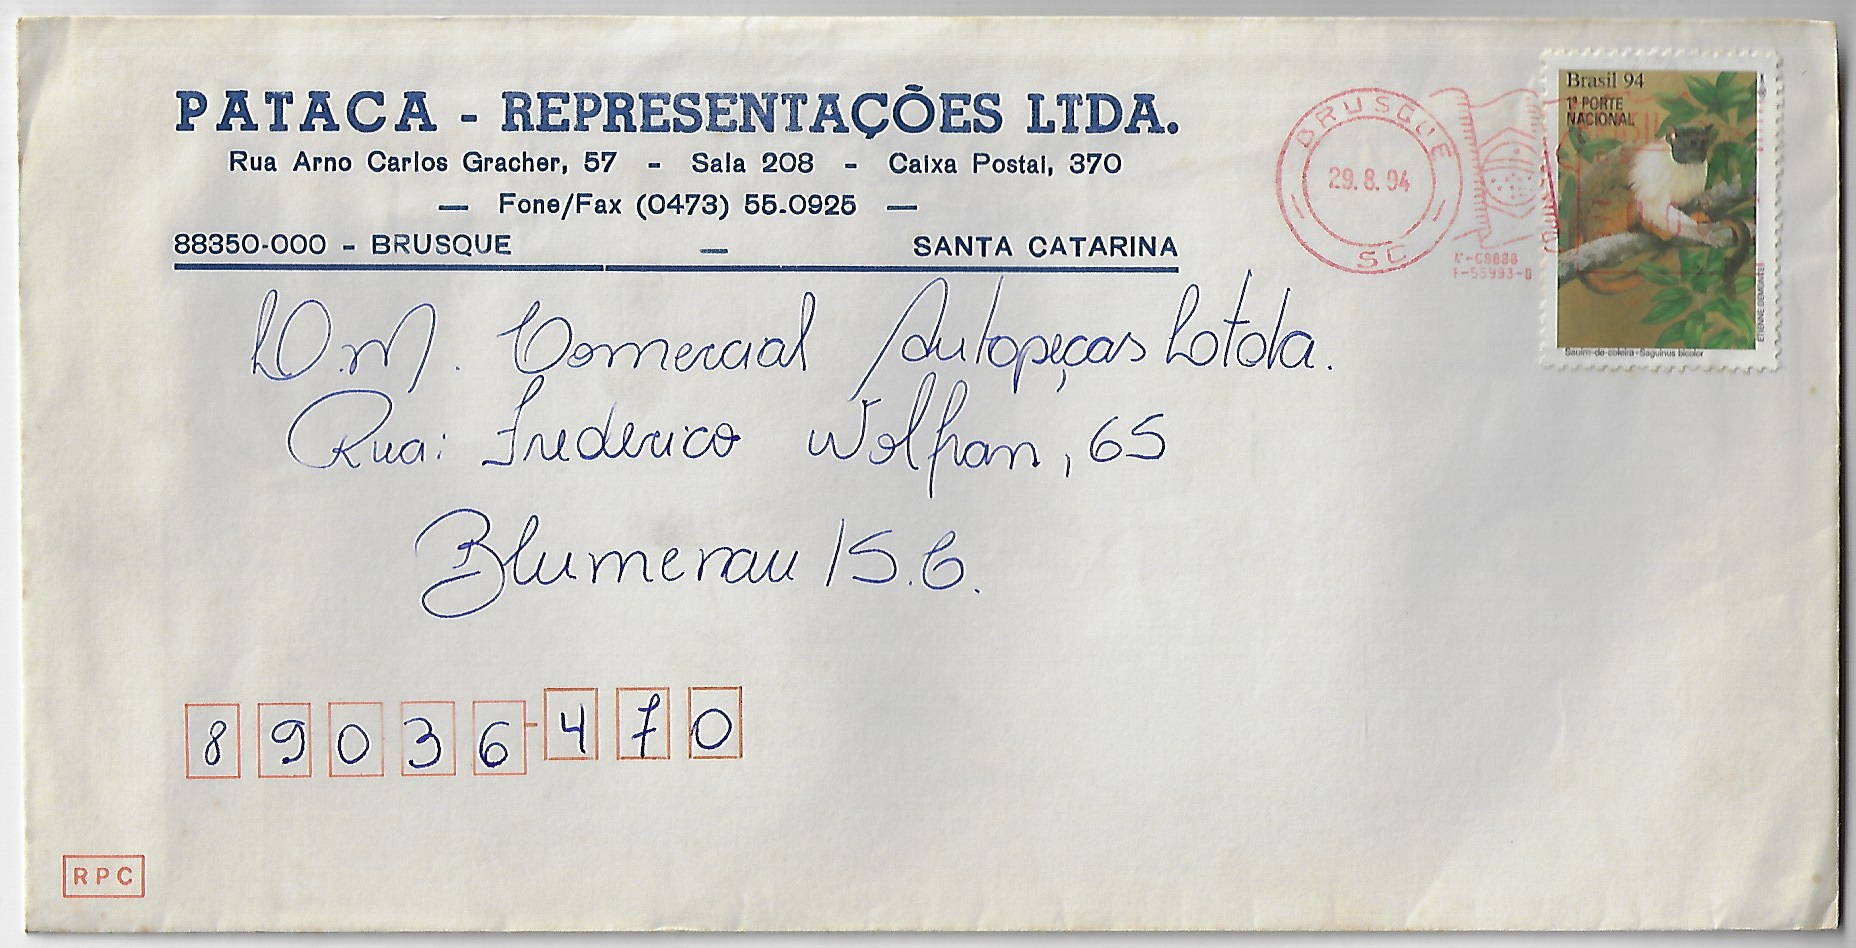 PATACA - REPRESENTAÇÕES LTDA.
Rua Arno Carlos Gracher, 57 - Sala 208 - Caixa Postal, 370
— Fone/Fax (0473) 55.0925 —
88350-000 - BRUSQUE — SANTA CATARINA
BRUSQUE
29.8.94
SC
F-55993-0
Brasil 94
1º PORTE
NACIONAL
ETIENNE DEMONTE
Sauim-de-coleira - Saguinus bicolor
D.M. Comercial Autopeças Ltda.
Rua: Frederico Wolfran, 65
Blumenau / S.C.
89036-470
RPC